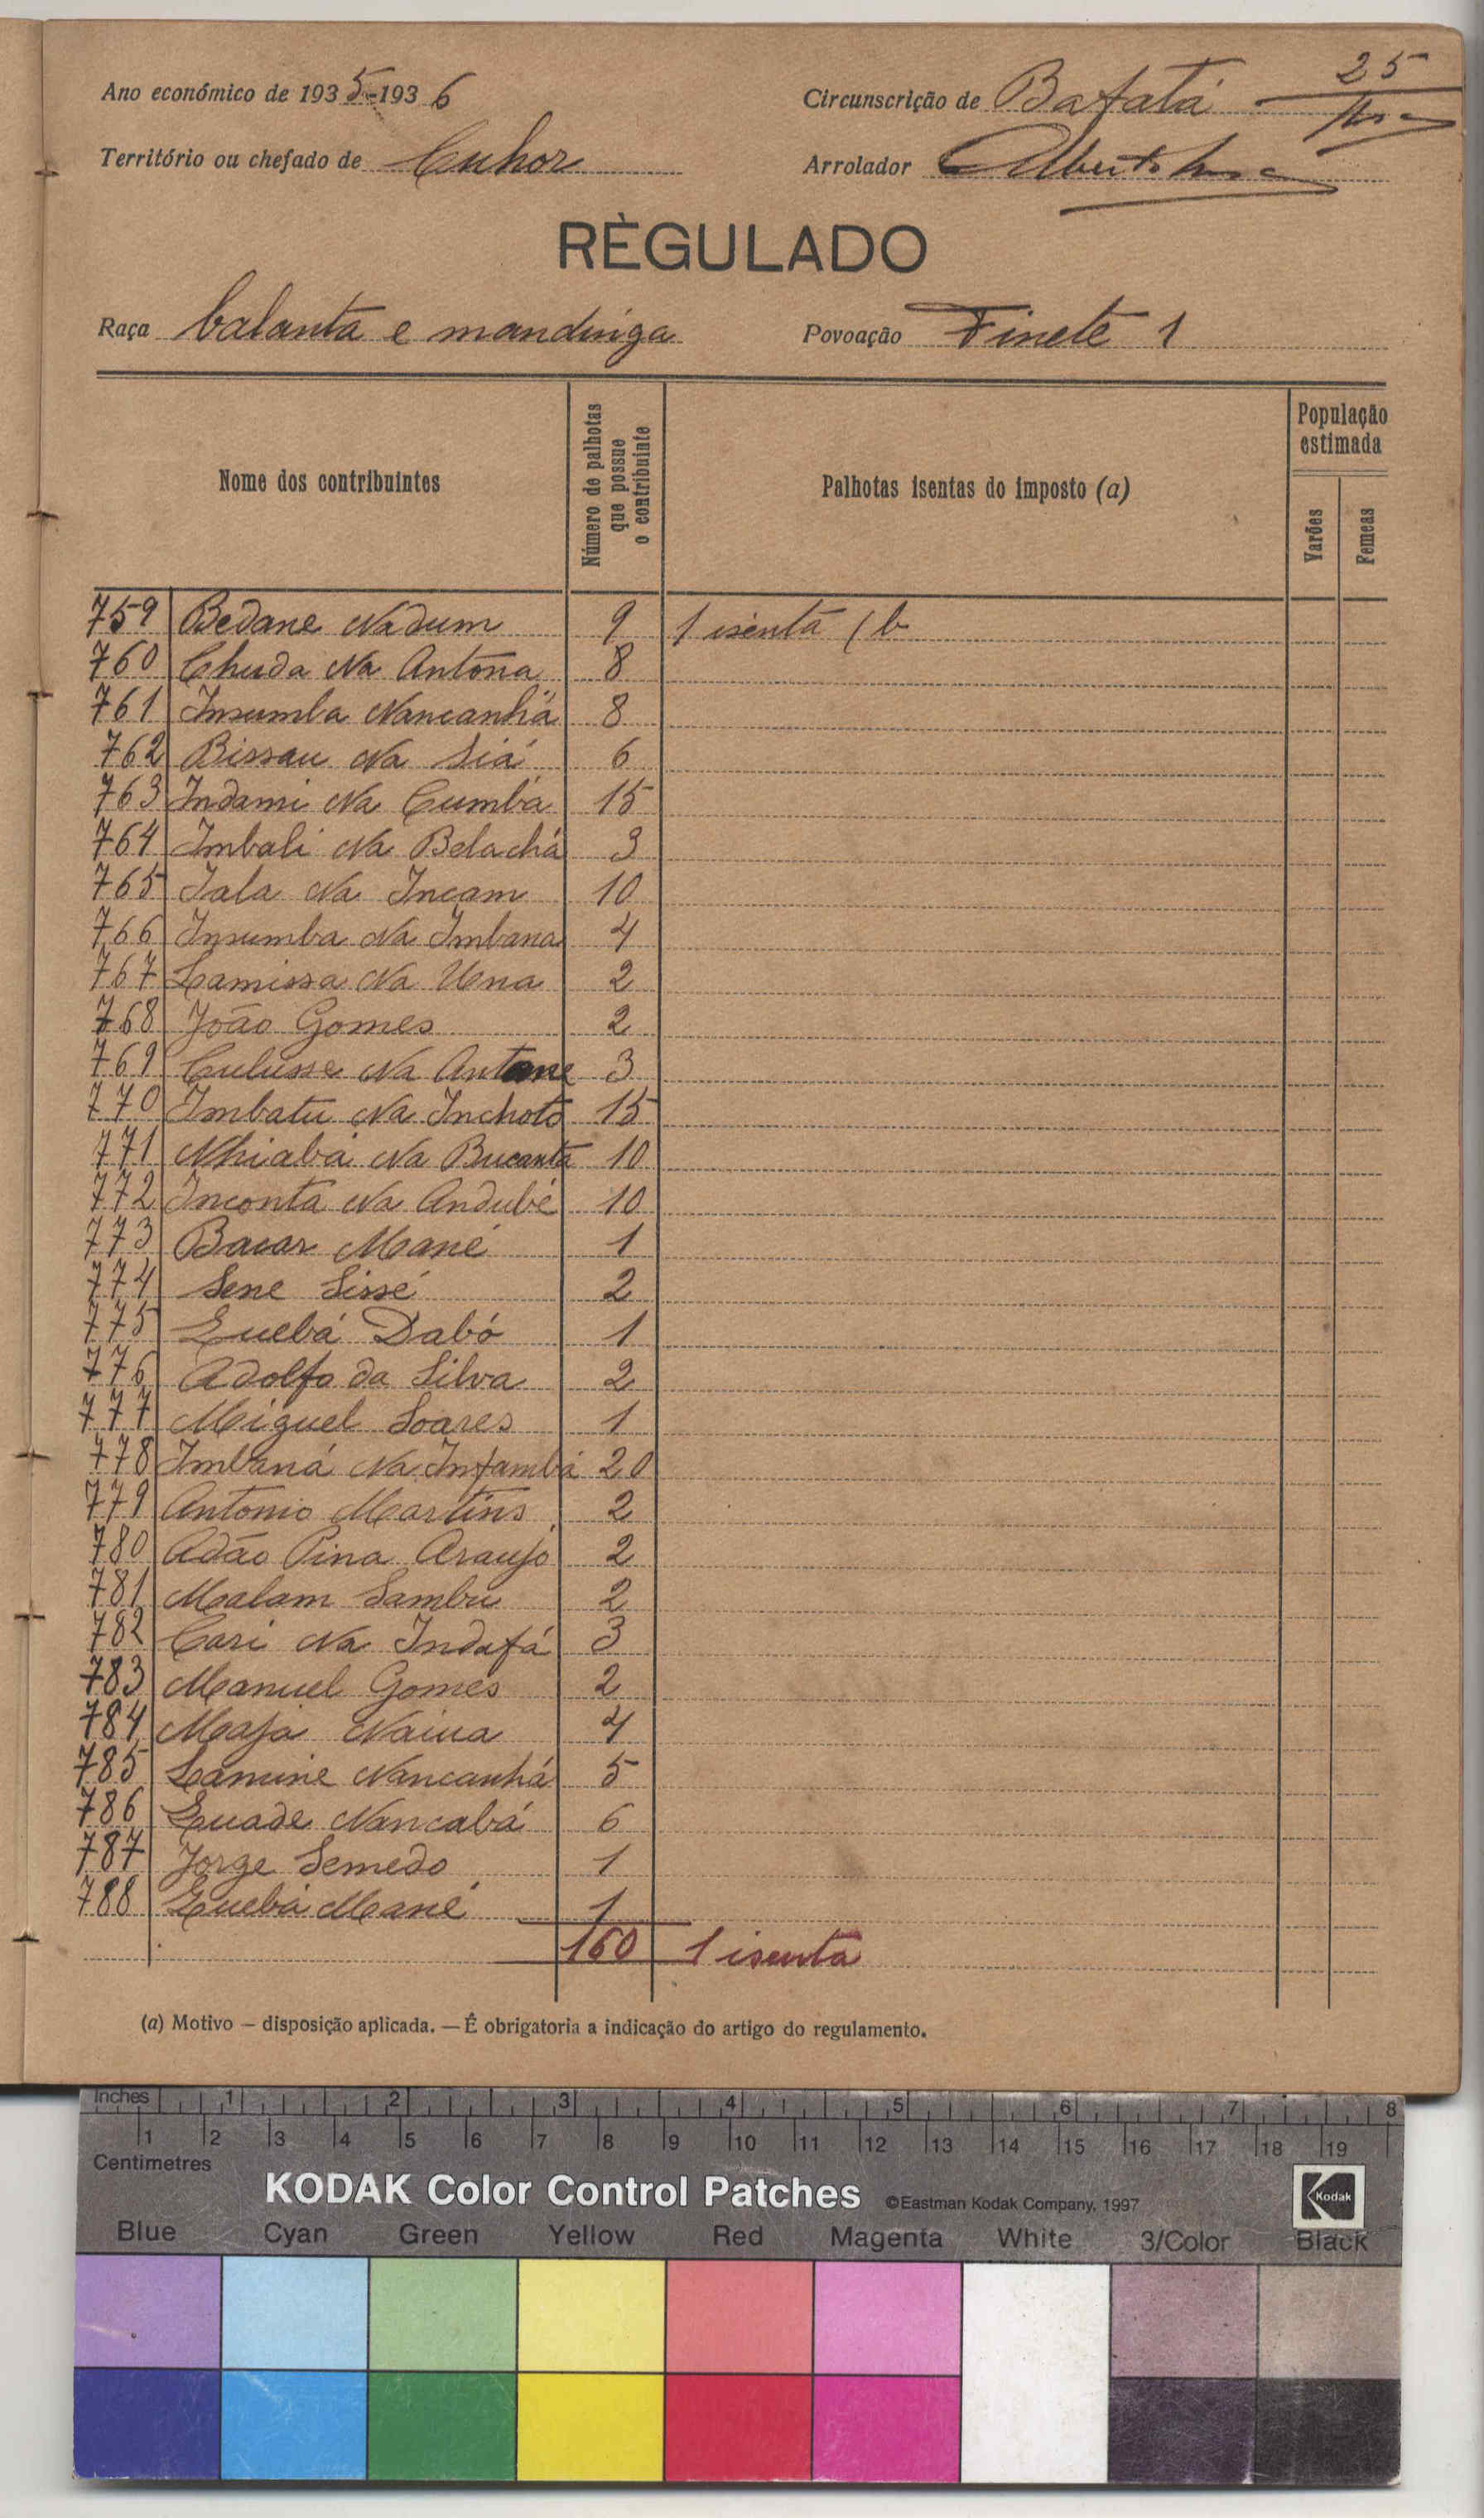 Ano económico de 1935-1936
Circunscrição de Bafatá 25
Território ou chefado de Cuhor
Arrolador Alberto
RÈGULADO
Raça balanta e mandinga
Povoação Finete 1
Nome dos contribuintes
Número de palhotas que possue o contribuinte
Palhotas isentas do imposto (a)
População estimada
Varões
Femeas
759 Bedane Nadum 9 1 isenta / b
760 Chuda Na Antona 8
761 Insumba Nancanhá 8
762 Bissau Na Siá 6
763 Indami Na Cumba 15
764 Imbali Na Belachá 3
765 Iala Na Incam 10
766 Insumba Na Imbana 4
767 Lamissa Na Una 2
768 João Gomes 2
769 Culusse Na Antone 3
770 Imbatu Na Inchoto 15
771 Nhiaba Na Bucanta 10
772 Inconta Na Andubé 10
773 Bacar Mané 1
774 Sene Sissé 2
775 Quebá Dabó 1
776 Adolfo da Silva 2
777 Miguel Soares 1
778 Imbaná Na Infambá 20
779 Antonio Martins 2
780 Adão Pina Araujo 2
781 Malam Sambu 2
782 Cari Na Indafá 3
783 Manuel Gomes 2
784 Maja Naiua 4
785 Lamine Nancanhá 5
786 Quade Nancabá 6
787 Jorge Semedo 1
788 Quebá Mané 1
160 1 isenta
(a) Motivo — disposição aplicada. — É obrigatoria a indicação do artigo do regulamento.
Inches 1 2 3 4 5 6 7 8
1 2 3 4 5 6 7 8 9 10 11 12 13 14 15 16 17 18 19
Centimetres
KODAK Color Control Patches ©Eastman Kodak Company, 1997 Kodak
Blue Cyan Green Yellow Red Magenta White 3/Color Black